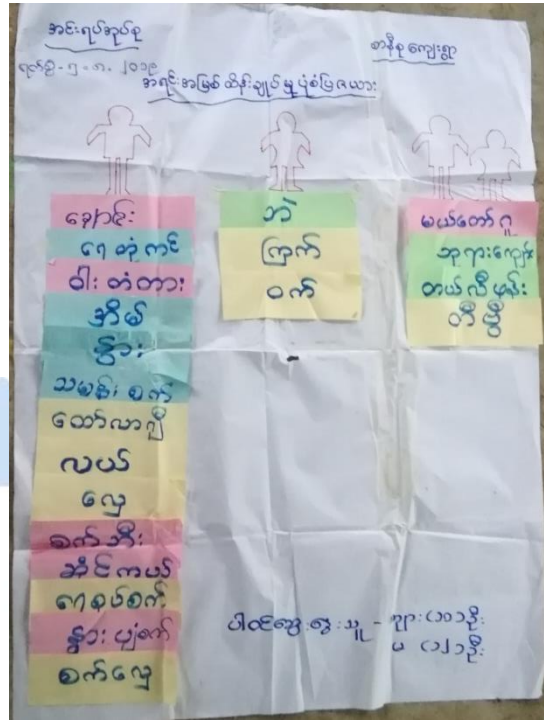 အင်းရပ်အုပ်စု
စာနီစုကျေးရွာ
ရက်စွဲ - ၅ - ၈ - ၂၀၁၉
အရင်းအမြစ် ထိန်းချုပ်မှု ပုံစံပြဇယား
ချောင်း
ရေတုံကင်
ဝါးတံတား
အိမ်
နွား
သမန်းစက်
ထော်လာဂျီ
လယ်
လှေ
စက်ဘီး
ဆိုင်ကယ်
ရေစုပ်စက်
နွားပျံစက်
စက်လှေ
ဘဲ
ကြက်
ဝက်
မယ်တော်ဂူ
ဘုရားကျောင်း
တယ်လီဖုန်း
တီဗွီ
ပါဝင်ဆွေးနွေးသူ - ကျား (၁၀) ဦး
မ (၁၂) ဦး